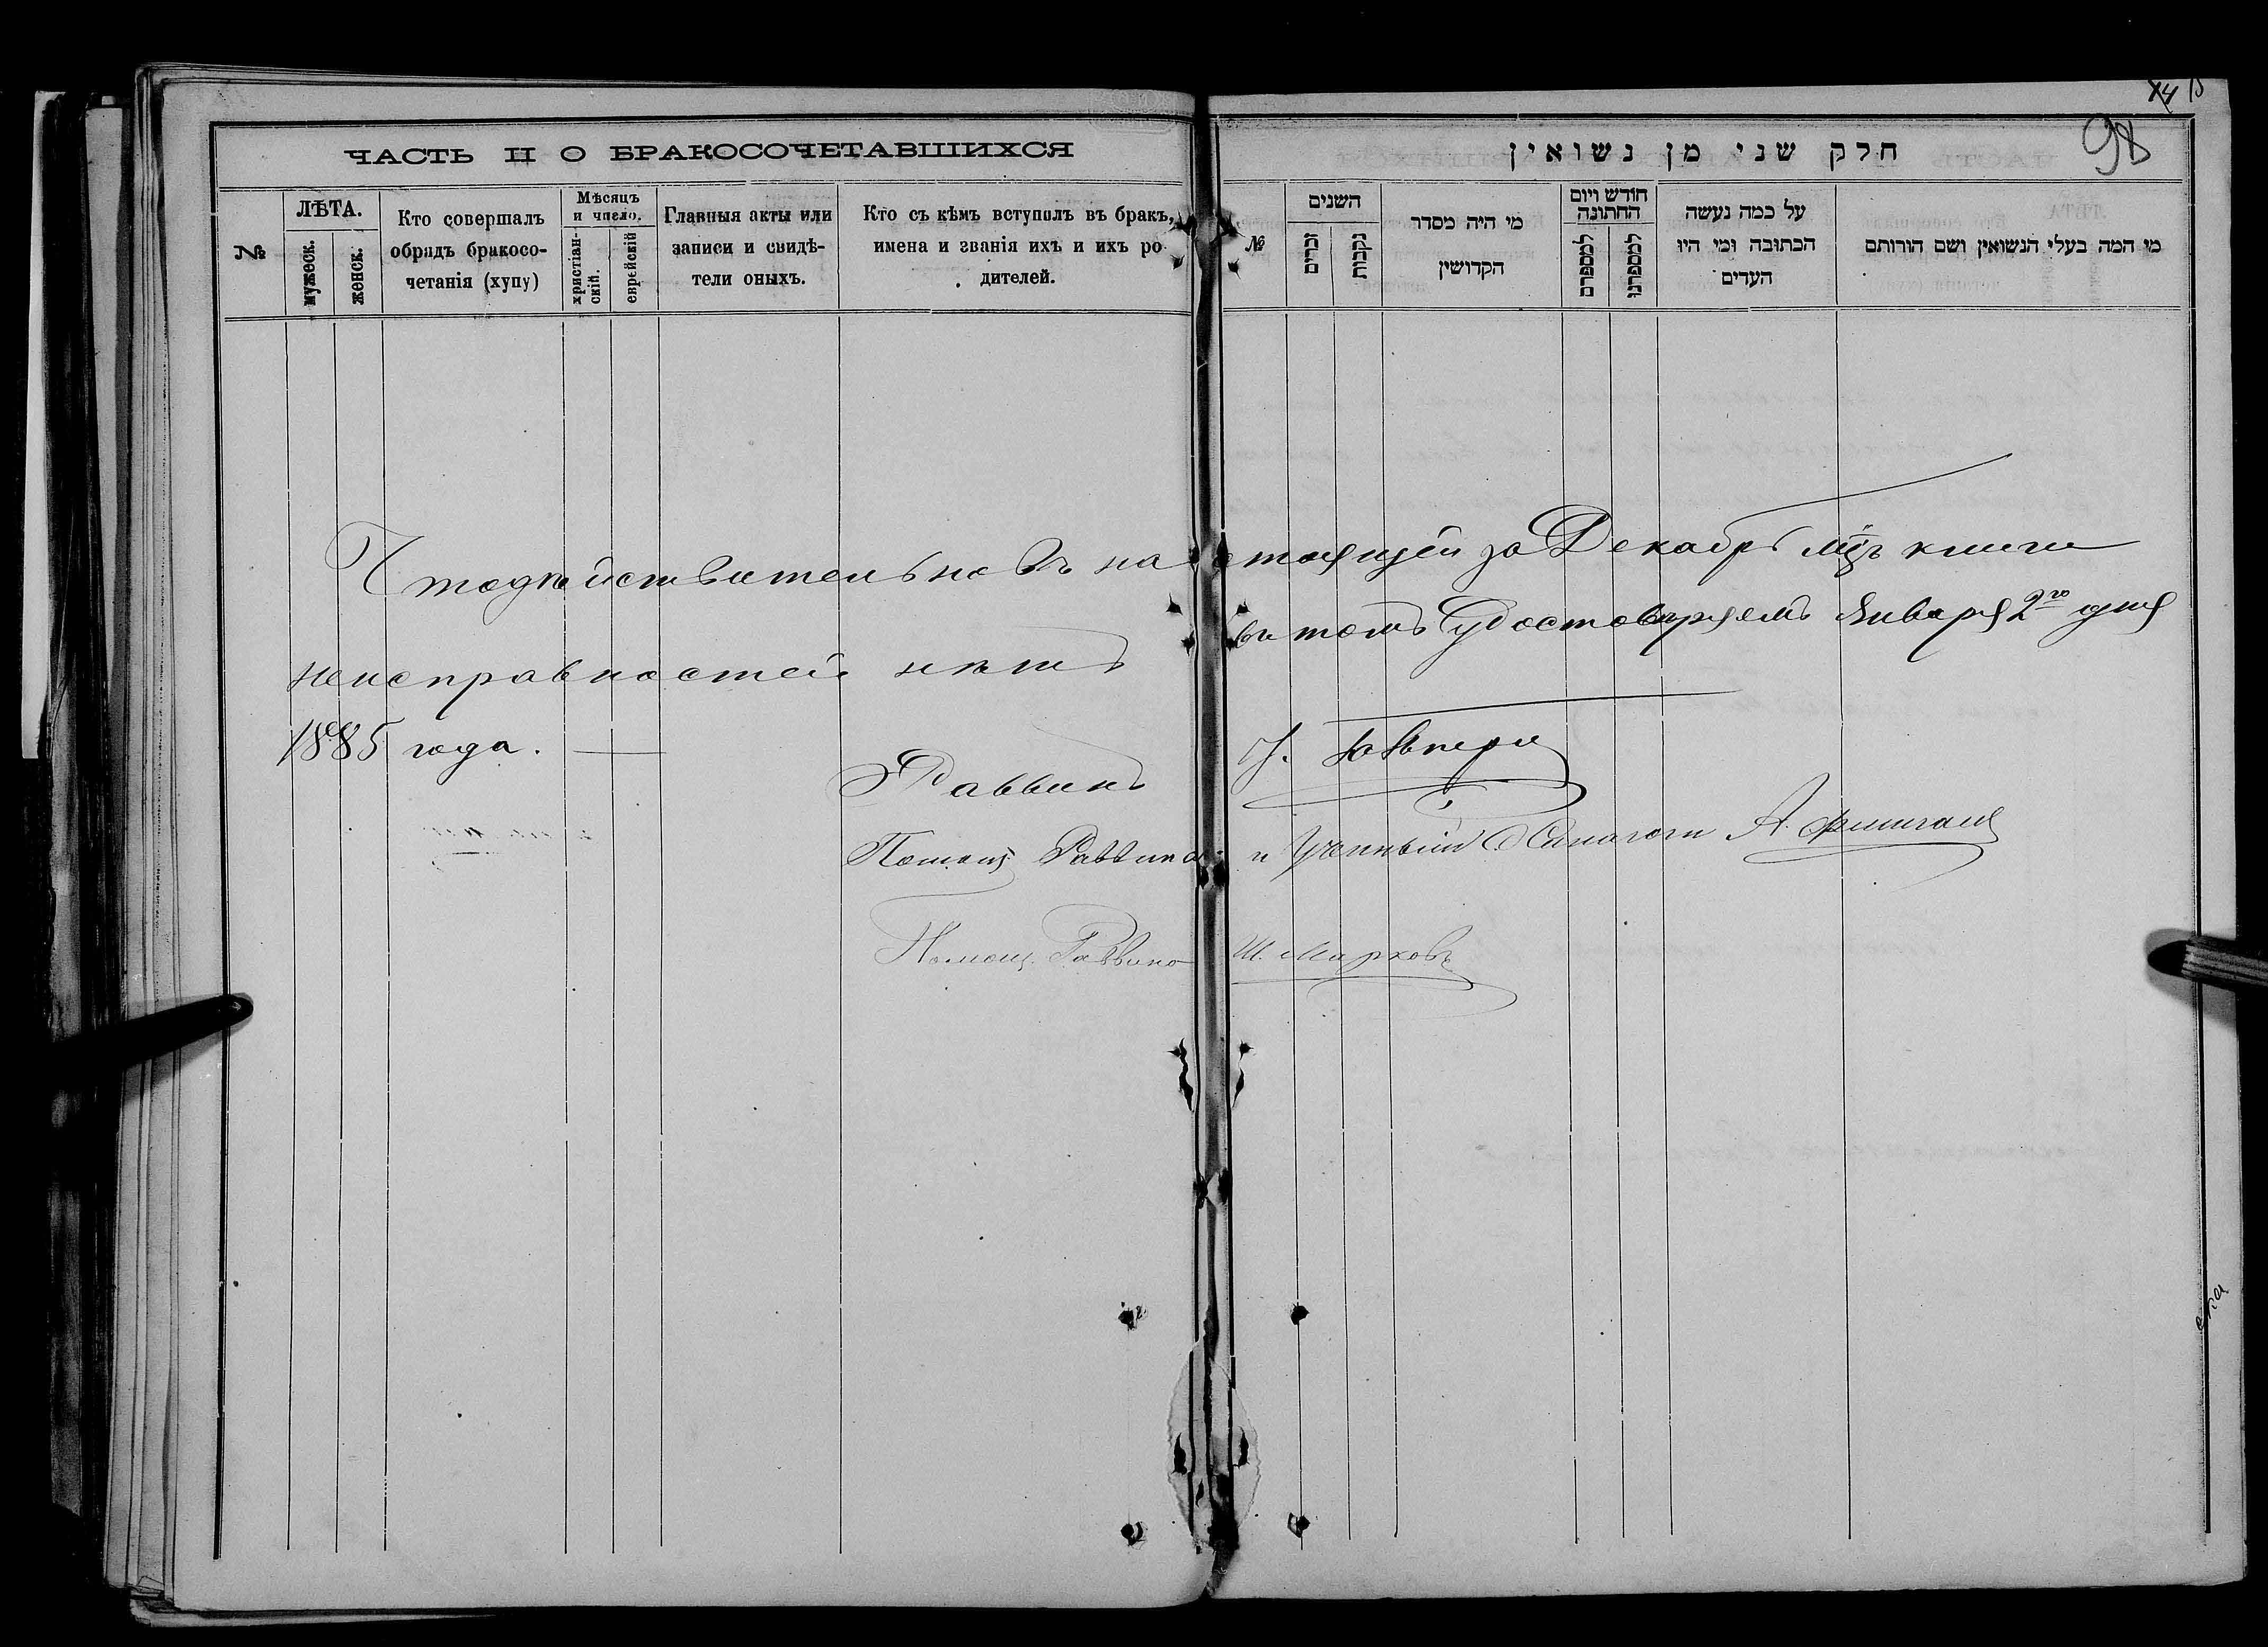 ЧАСТЬ II О БРАКОСОЧЕТАВШИХСЯ
№
ЛѢТА.
мужеск.
женск.
Кто совершалъ
обрядъ бракосо-
четанія (хупу)
Мѣсяцъ
и число.
христіан-
скій.
еврейскій
Главныя акты или
записи и свидѣ-
тели оныхъ.
Кто съ кѣмъ вступилъ въ бракъ,
имена и званія ихъ и ихъ ро
дителей.
חלק שני מן נשואין
98
№
השנים
זכרים
נקבות
מי היה מסדר
הקדושין
חודש ויום
החתונה
למספרם
למספרנו
על כמה נעשה
הכתובה ומי היו
העדים
מי המה בעלי הנשואין ושם הורותם
Что дѣйствительно въ настоящей за Декабрь мцъ книги
неисправностей нѣтъ въ томъ удостовѣряемъ Января 2го дня
1885 года.
Раввинъ
Помощ. Раввина и Ученный Синагоги А.
Помощ. Раввина Ш. Марковъ